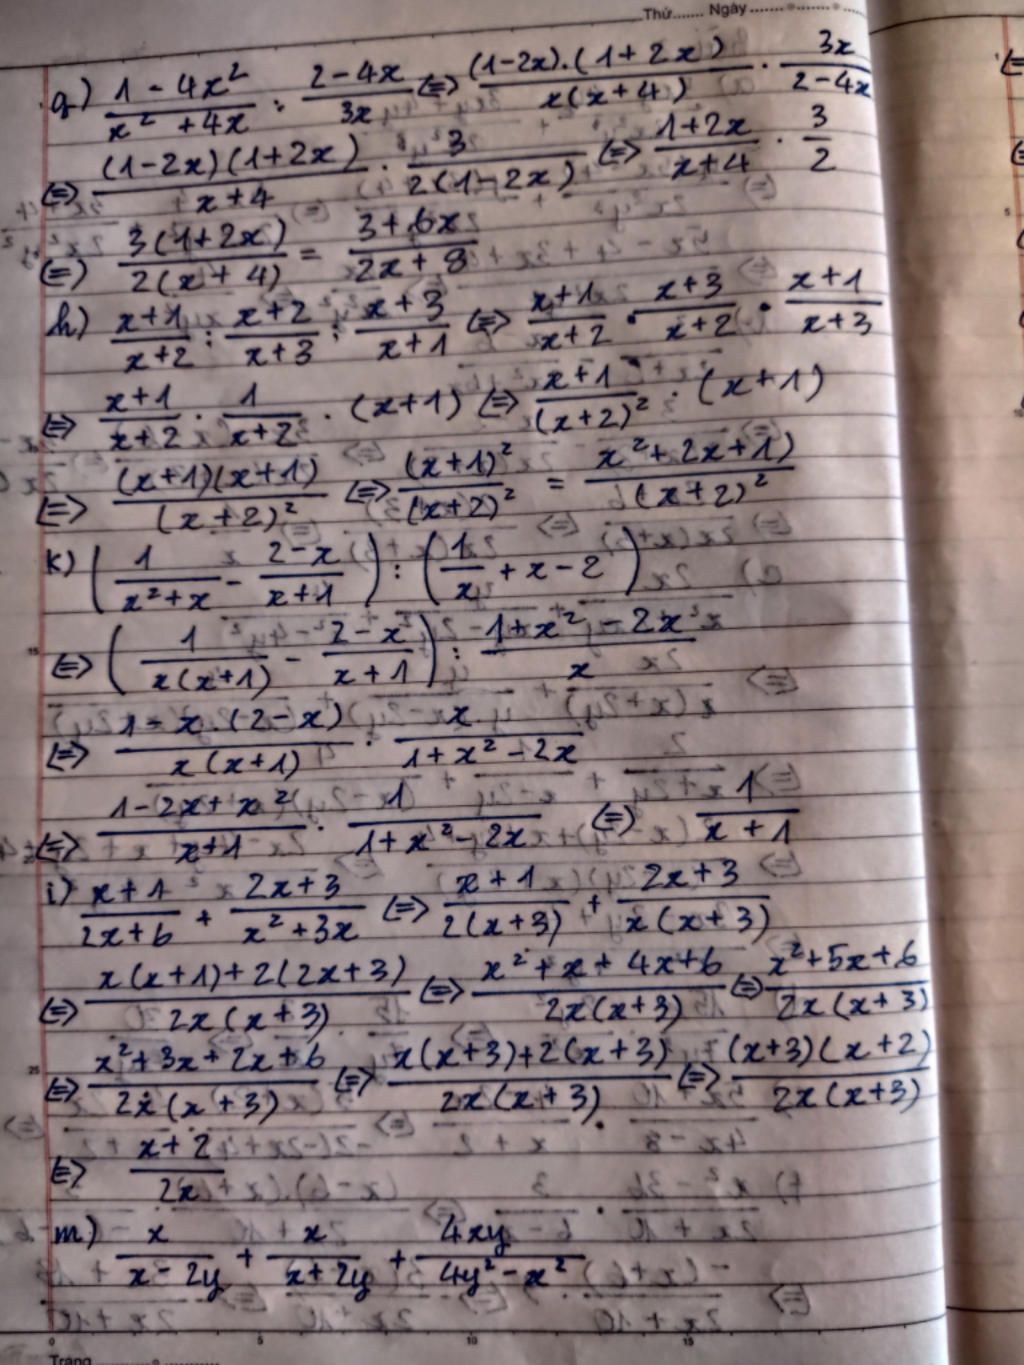 Thứ....... Ngày
g) \frac{1-4x^2}{x^2+4x} : \frac{2-4x}{3x} (=) \frac{(1-2x).(1+2x)}{x(x+4)} . \frac{3x}{2-4x}
(=) \frac{(1-2x)(1+2x)}{x+4} . \frac{3}{2(1-2x)} (=) \frac{1+2x}{x+4} . \frac{3}{2}
(=) \frac{3(1+2x)}{2(x+4)} = \frac{3+6x}{2x+8}
h) \frac{x+1}{x+2} : \frac{x+2}{x+3} : \frac{x+3}{x+1} (=) \frac{x+1}{x+2} . \frac{x+3}{x+2} . \frac{x+1}{x+3}
(=) \frac{x+1}{x+2} . \frac{1}{x+2} . (x+1) (=) \frac{x+1}{(x+2)^2} . (x+1)
(=) \frac{(x+1)(x+1)}{(x+2)^2} (=) \frac{(x+1)^2}{(x+2)^2} = \frac{x^2+2x+1)}{(x+2)^2}
k) (\frac{1}{x^2+x} - \frac{2-x}{x+1}) : (\frac{1}{x} + x - 2)
(=) (\frac{1}{x(x+1)} - \frac{2-x}{x+1}) : \frac{1+x^2-2x}{x}
(=) \frac{1-x.(2-x)}{x(x+1)} . \frac{x}{1+x^2-2x}
(=) \frac{1-2x+x^2}{x+1} . \frac{1}{1+x^2-2x} (=) \frac{1}{x+1}
i) \frac{x+1}{2x+6} + \frac{2x+3}{x^2+3x} (=) \frac{x+1}{2(x+3)} + \frac{2x+3}{x(x+3)}
(=) \frac{x(x+1)+2(2x+3)}{2x(x+3)} (=) \frac{x^2+x+4x+6}{2x(x+3)} (=) \frac{x^2+5x+6}{2x(x+3)}
(=) \frac{x^2+3x+2x+6}{2x(x+3)} (=) \frac{x(x+3)+2(x+3)}{2x(x+3)} (=) \frac{(x+3)(x+2)}{2x(x+3)}
(=) \frac{x+2}{2x}
m) \frac{x}{x-2y} + \frac{x}{x+2y} + \frac{4xy}{4y^2-x^2}
0 5 10 15
Trang